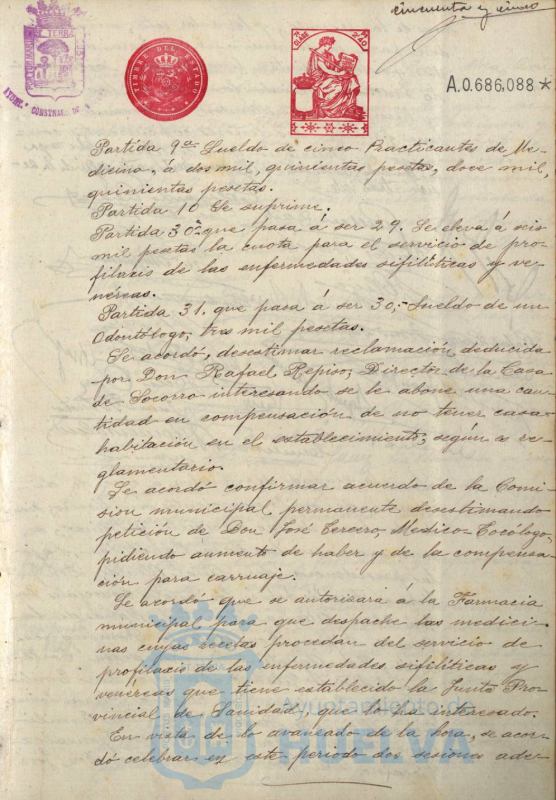 cincuenta y cinco
TIMBRE DEL ESTADO
A.0.686,088*
Partida 9ª Sueldo de cinco Practicantes de Me-
dicina, á dos mil, quinientas pesetas, doce mil,
quinientas pesetas.
Partida 10 Se suprime.
Partida 30ª que pasa á ser 29. Se eleva á seis
mil pesetas la cuota para el servicio de pro-
filaxis de las enfermedades sifilíticas y ve-
néreas.
Partida 31. que pasa á ser 30,- Sueldo de un
Odontólogo, tres mil pesetas.
Se acordó, desestimar reclamación deducida
por Don Rafael Repiso, Director de la Casa
de Socorro interesando se le abone una can-
tidad en compensación de no tener casa-
habitación en el establecimiento, según es re-
glamentario.
Se acordó confirmar acuerdo de la Comi-
sion municipal permanente desestimando
petición de Don José Tercero, Medico-Tocólogo,
pidiendo aumento de haber y de la compensa-
ción para carruaje.
Se acordó que se autorizara á la Farmacia
municipal para que despache las medici-
nas cuyas recetas procedan del servicio de
profilaxis de las enfermedades sifilíticas y
venéreas que tiene establecido la Junta Pro-
vincial de Sanidad, que lo ha interesado.
En vista de lo avanzado de la hora, se acor-
dó celebrar en este periodo dos sesiones ade-
Ayuntamiento de
HUELVA